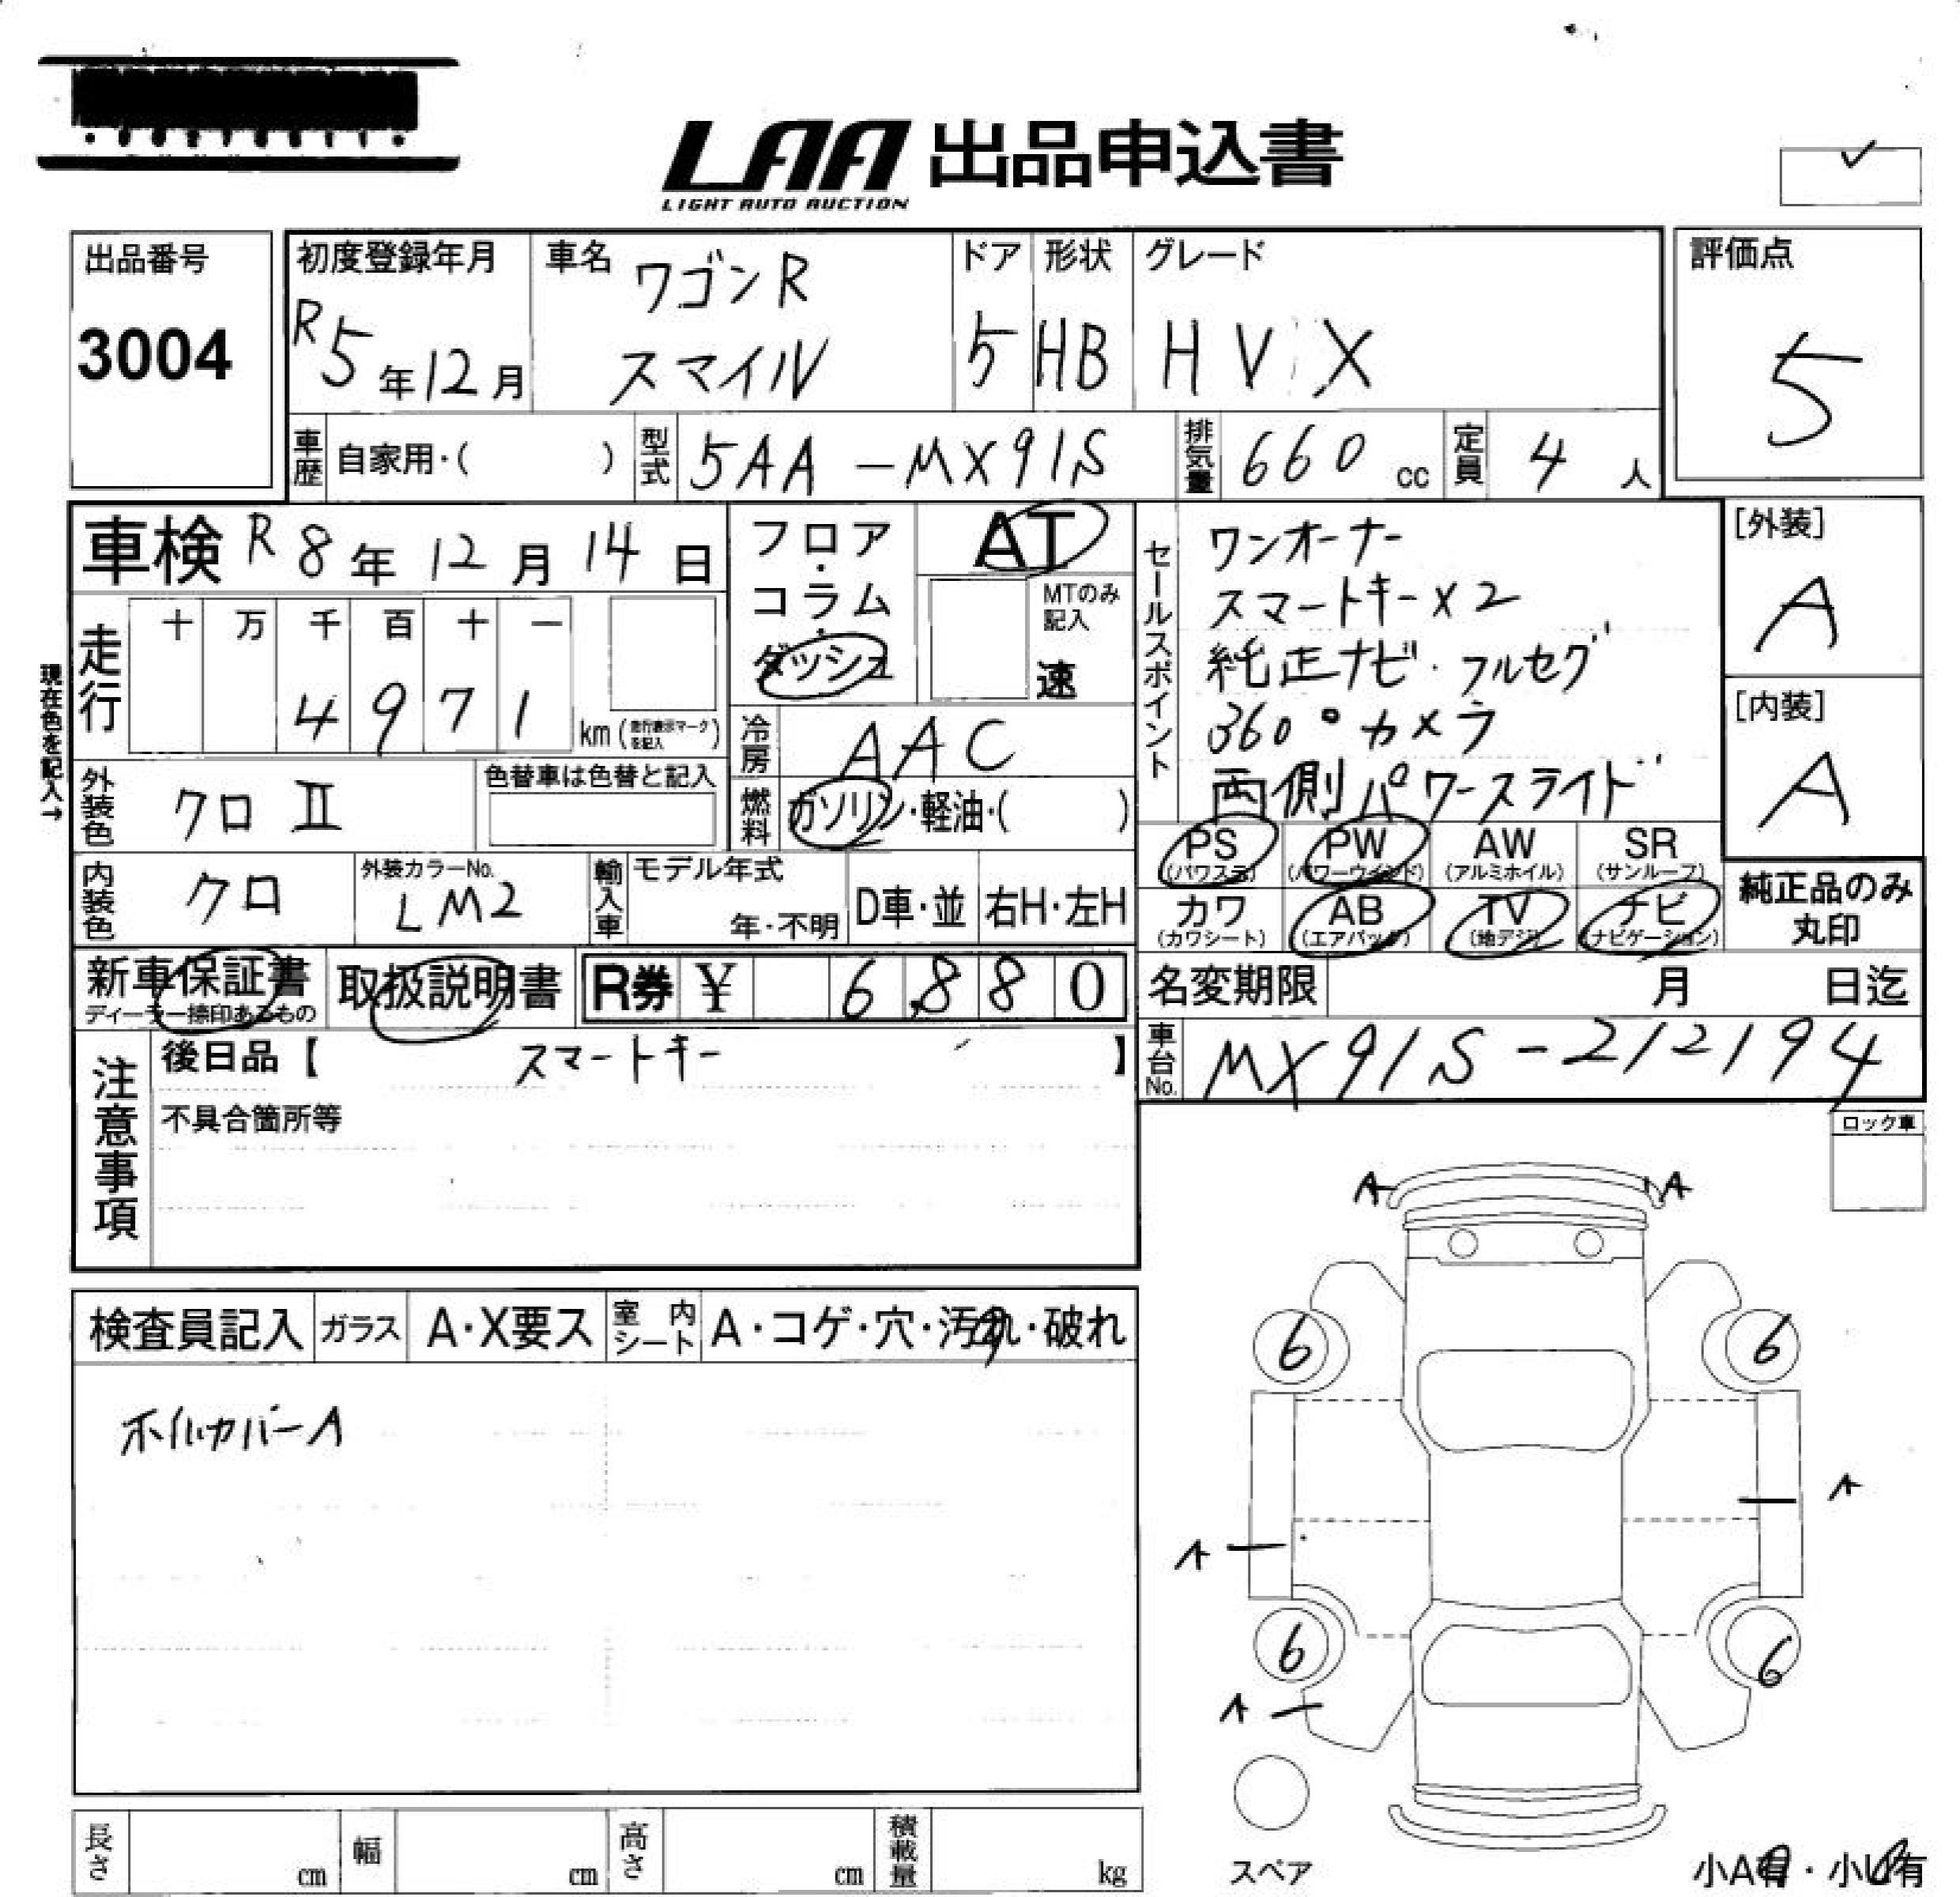 LAA 出品申込書
LIGHT AUTO AUCTION
✓
出品番号
3004
初度登録年月
R5年12月
車名
ワゴンR
スマイル
ドア
5
形状
HB
グレード
HV X
評価点
5
車歴 自家用・( )
型式 5AA-MX91S
排気量 660 cc
定員 4 人
車検 R8年12月14日
走行 十 万 千 百 十 一
4971 km (走行表示マークを記入)
現在色を記入→
外装色 クロⅡ
色替車は色替と記入
内装色 クロ
外装カラーNo.
LM2
フロア・コラム・ダッシュ
AT
MTのみ記入
速
冷房 AAC
燃料 ガソリン・軽油・( )
輸入車 モデル年式
年・不明
D車・並
右H・左H
セールスポイント
ワンオーナー
スマートキー×2
純正ナビ・フルセグ
360°カメラ
両側パワースライド
[外装]
A
[内装]
A
PS (パワステ)
PW (パワーウインド)
AW (アルミホイル)
SR (サンルーフ)
カワ (カワシート)
AB (エアバッグ)
TV (地デジ)
ナビ (ナビゲーション)
純正品のみ
丸印
新車保証書
ディーラー捺印あるもの
取扱説明書
R券 ¥ 6,880
名変期限 月 日迄
車台No. MX91S-212194
注意事項
後日品【 スマートキー 】
不具合箇所等
ロック車
検査員記入
ガラス A・X要ス
室内シート A・コゲ・穴・汚れ・破れ
ホイルカバーA
A A
6 6
A
A
6 6
A
スペア
小A有・小U有
長さ cm
幅 cm
高さ cm
積載量 kg